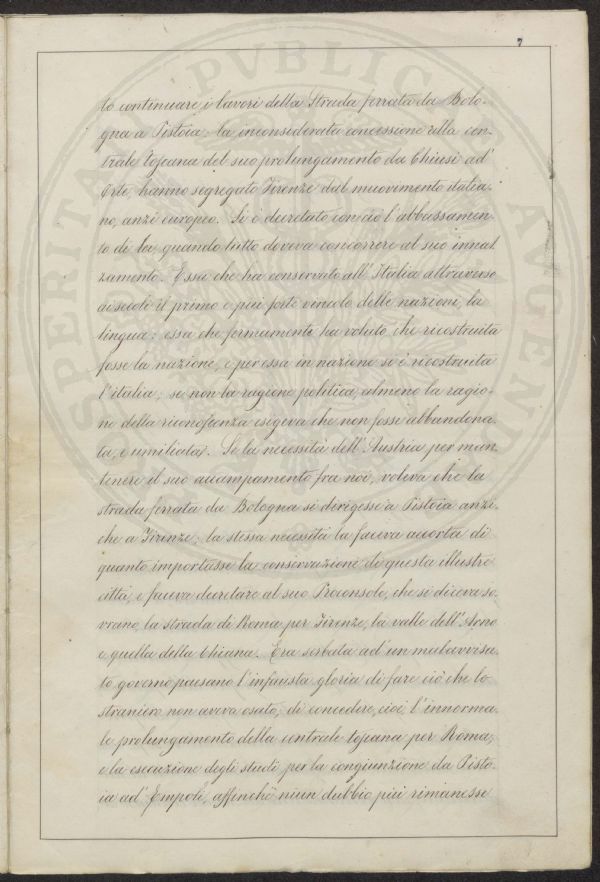 7
to continuare i lavori della Strada ferrata da Bolo-
gna a Pistoia: la inconsiderata concessione alla cen-
trale toscana del suo prolungamento da Chiusi ad'
Orte, hanno segregato Firenze dal muovimento italia-
no, anzi europeo. Si è decretato con ciò l'abbassamen-
to di lei, quando tutto doveva concorrere al suo innal-
zamento. Essa che ha conservato all'Italia attraverso
ai secoli il primo e più forte vincolo delle nazioni, la
lingua: essa che fermamente ha voluto che ricostruita
fosse la nazione, e per essa in nazione si è ricostruita
l'italia, se non la ragione politica, almeno la ragio-
ne della riconoscenza esigeva che non fosse abbandona-
ta, e umiliata. Se la necessità dell'Austria per man-
tenere il suo accampamento fra noi, voleva che la
strada ferrata da Bologna si dirigesse a Pistoia anzi-
che a Firenze; la stessa necessità la faceva accorta di
quanto importasse la conservazione di questa illustre
città, e faceva decretare al suo Proconsole, che si diceva so-
vrano, la strada di Roma per Firenze, la valle dell'Arno
e quella della Chiana. Era serbata ad'un malavvisa-
to governo paesano l'infausta gloria di fare ciò che lo
straniero non aveva osato; di concedere, cioè, l'innorma-
le prolungamento della centrale toscana per Roma;
e la esecuzione degli studi per la congiunzione da Pisto-
ia ad'Empoli, affinchè niun dubbio più rimanesse